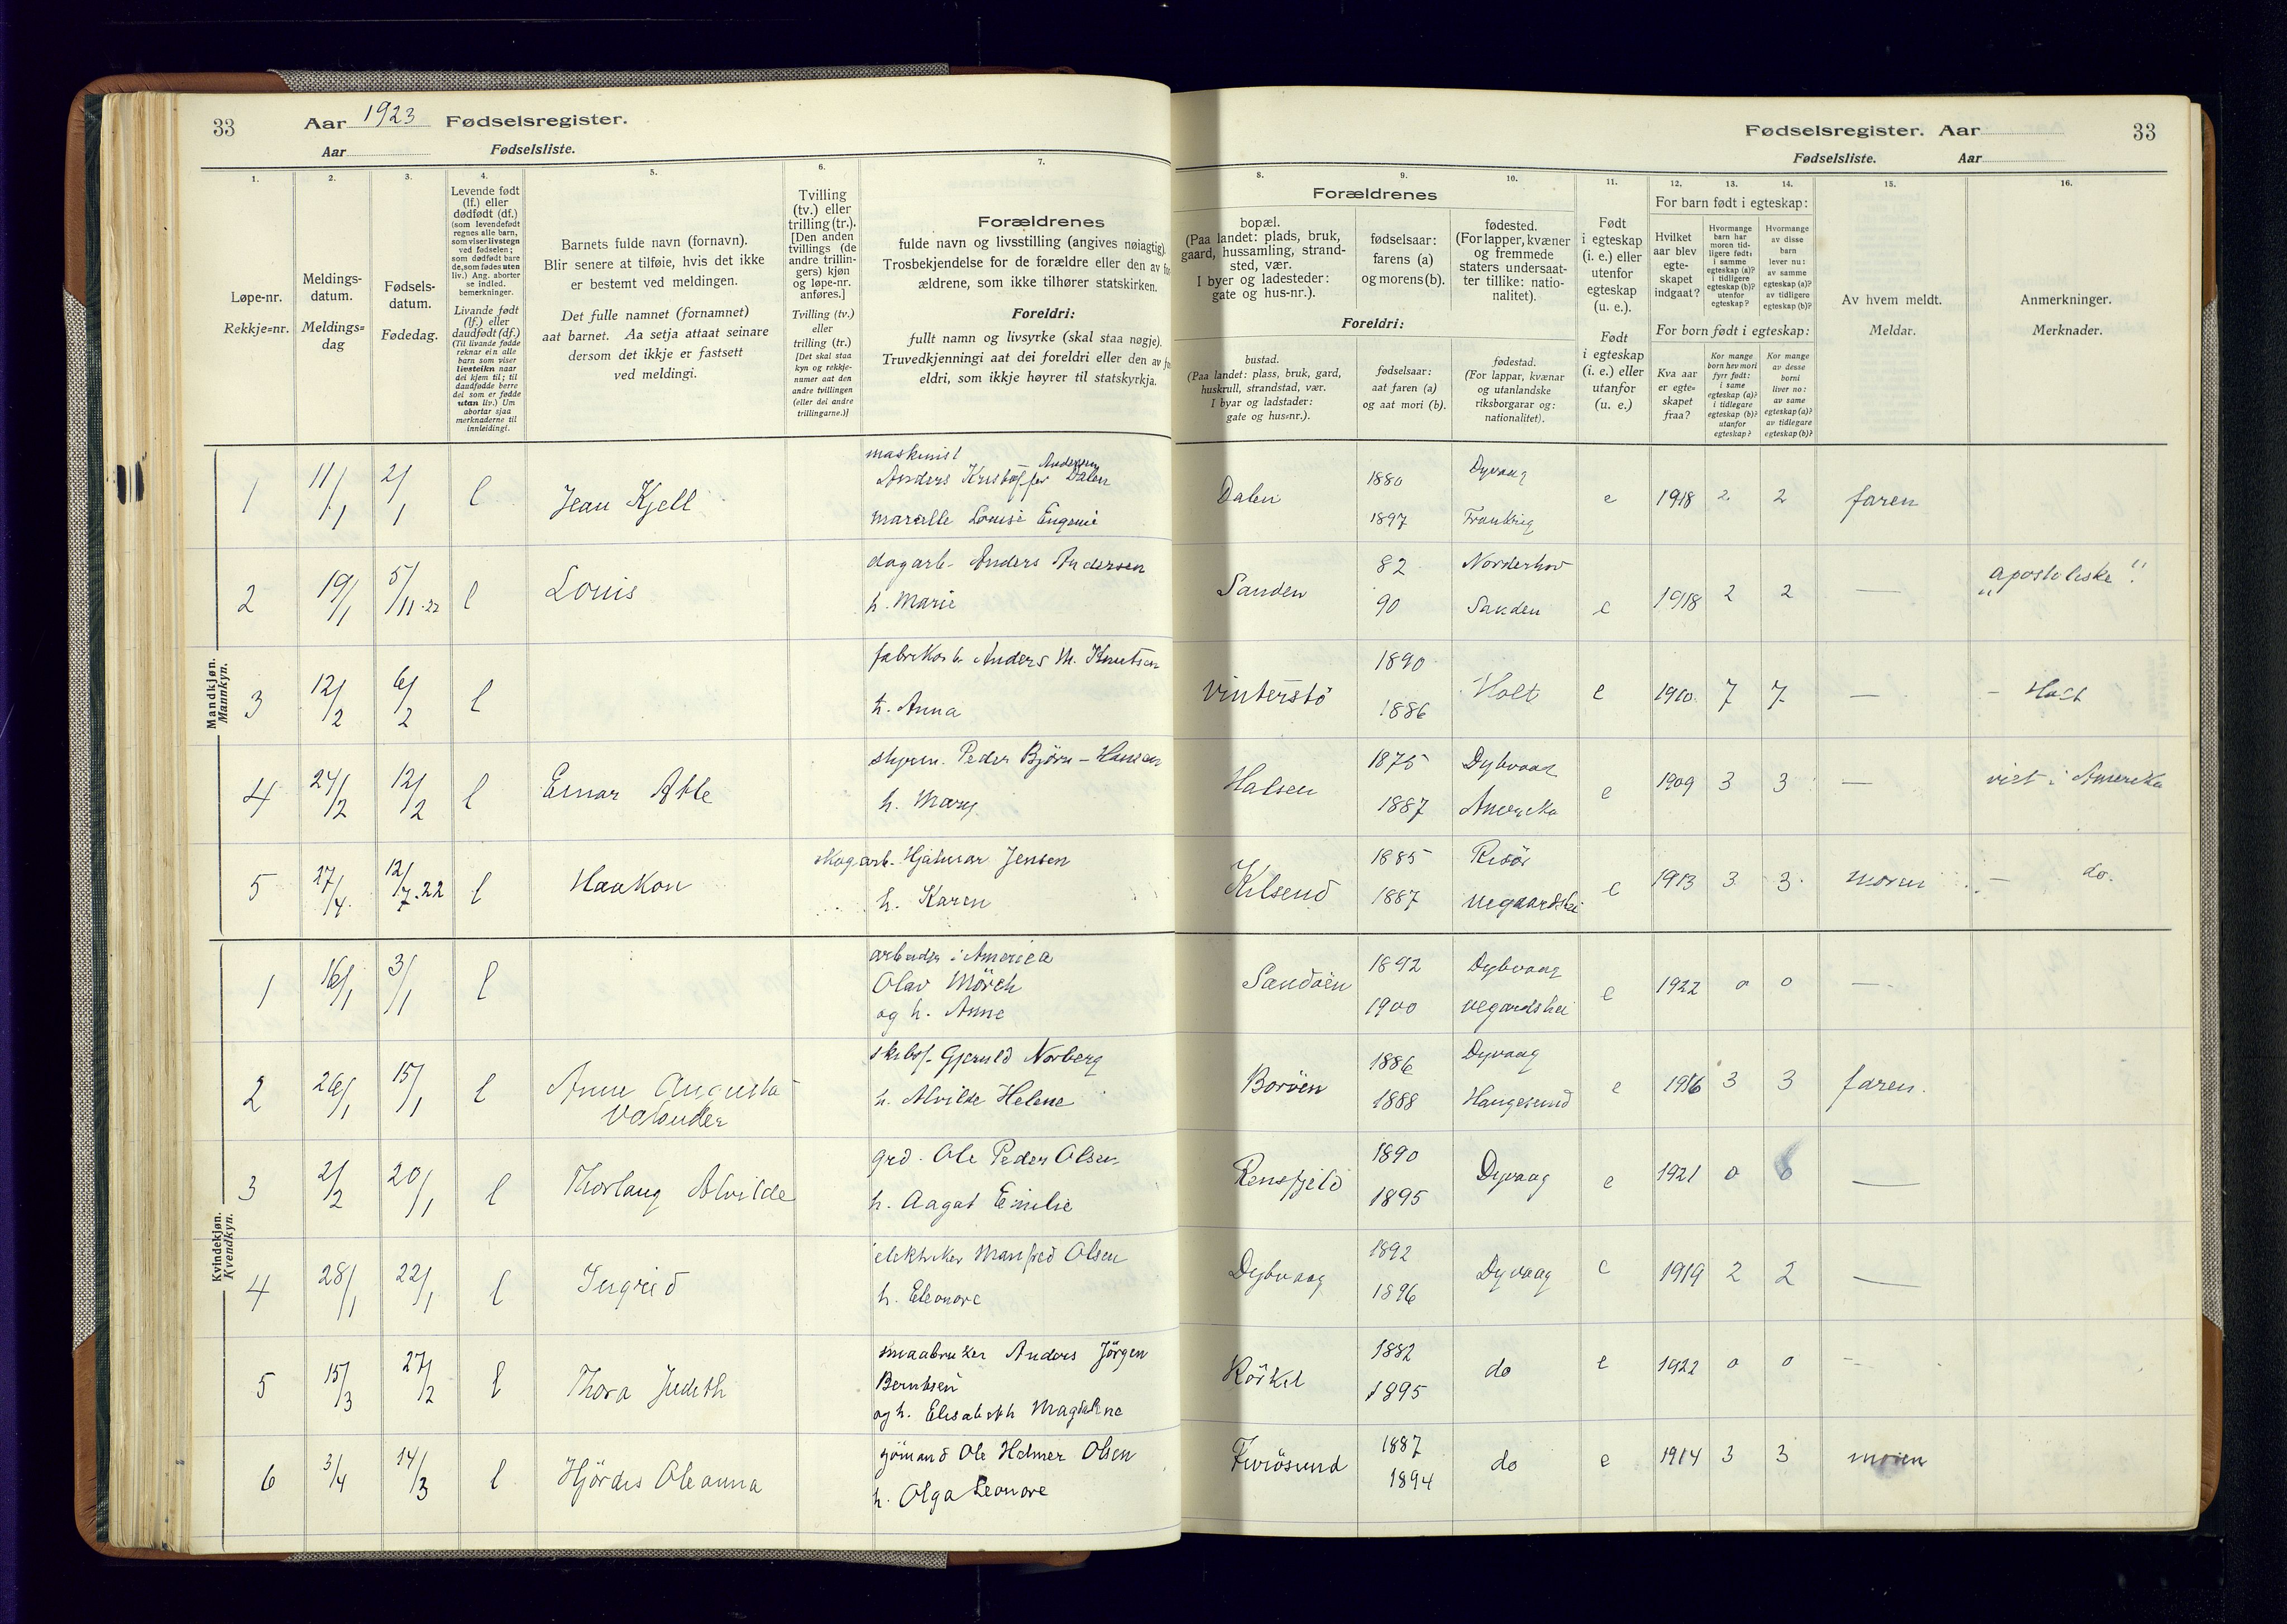 33 Aar 1923 Fødselsregister.
Aar Fødselsliste.
Fødselsregister. Aar 33
Fødselsliste. Aar
1. 2. 3. 4. 5. 6. 7.
Løpe-nr.
Rekkje=nr.
Meldings-
datum.
Meldings=
dag
Fødsels-
datum.
Fødedag.
Levende født
(lf.) eller
dødfødt (df.)
(som levendefødt
regnes alle barn,
som viser livstegn
ved fødselen;
som dødfødt bare
de, som fødes uten
liv.) Ang. aborter
se indled.
bemerkninger.
Livande fødd
(lf.) eller
daudfødt (df.)
(Til livande fødde
reknar ein alle
barn som viser
livsteikn naar
dei kjem til; til
daudfødde berre
dei som er fødde
utan liv.) Um
abortar sjaa
merknaderne til
innleidingi.
Barnets fulde navn (fornavn).
Blir senere at tilføie, hvis det ikke
er bestemt ved meldingen.
Det fulle namnet (fornamnet)
aat barnet. Aa setja attaat seinare
dersom det ikkje er fastsett
ved meldingi.
Tvilling
(tv.) eller
trilling (tr.).
[Den anden
tvillings (de
andre trillin-
gers) kjøn
og løpe-nr.
anføres.]
Tvilling (tv.)
eller
trilling (tr.)
[Det skal staa
kyn og rekkje-
numer aat den
andre tvillingen
(eller dei andre
trillingarne.)]
Forældrenes
fulde navn og livsstilling (angives nøiagtig).
Trosbekjendelse for de forældre eller den av for
ældrene, som ikke tilhører statskirken.
Foreldri:
fullt namn og livsyrke (skal staa nøgje).
Truvedkjenningi aat dei foreldri eller den av
eldri, som ikkje høyrer til statskyrkja.
8. 9. 10. 11. 12. 13. 14. 15. 16.
Forældrenes
bopæl.
(Paa landet: plads, bruk,
gaard, hussamling, strand-
sted, vær.
I byer og ladesteder:
gate og hus-nr.).
Foreldri:
bustad.
(Paa landet: plass, bruk, gard,
huskrull, strandstad, vær.
I byar og ladstader:
gate og hus=nr.).
fødselsaar:
farens (a)
og morens (b).
fødselsaar:
aat faren (a)
og aat mori (b).
fødested.
(For lapper, kvæner
og fremmede
staters undersaat-
ter tillike: natio-
nalitet).
fødestad.
(For lappar, kvænar
og utanlandske
riksborgarar og:
nationalitet).
Født
i egteskap
(i. e.) eller
utenfor
egteskap
(u. e.).
Født
i egteskap
(i. e.) eller
utanfor
(u. e.)
For barn født i egteskap:
Hvilket
aar blev
egte-
skapet
indgaat?
Hvormange
barn har
moren tid-
ligere født:
i samme
egteskap (a)?
i tidligere
egteskap (b)?
utenfor
egteskap?
Hvormange
av disse
barn
lever nu:
av samme
egteskap (a)?
av tidligere
egteskap (b)?
For born født i egteskap:
Kva aar
er egte=
skapet
fraa?
Kor mange
born hev mori
fyrr født:
i same
egteskap (a)?
i tidlegare
egteskap (b)?
utanfor
egteskap?
Kor mange
av desse
borni
liver no:
av same
egteskap (a)?
av tidlegare
egteskap (b)?
Av hvem meldt.
Meldar.
Anmerkninger.
Merknader.
Mandkjøn.
Mannkyn.
1 11/1 2/1 l Jean Kjell maskinist Anders Kristoffer Andersen Dalen Marcelle Louise Eugenie Dalen 1880 1897 Dyvaag Frankrig e 1918 2 2 faren
2 19/1 5/11.22 l Louis dagarb. Anders Andersen h. Marie Sanden 82 90 Norderhov Sanden e 1918 2 2 — "apostoliske".
3 12/2 6/2 l fabrikarb. Anders M. Knutsen h. Anna Vinterstö 1890 1886 Holt e 1910 7 7 — - Holt
4 24/2 12/2 l Einar Atle styrm. Peder Björn-Hansen h. Mary Halsen 1875 1887 Dybvaag Amerika e 1909 3 3 — viet i Amerika
5 27/4. 12/7.22 l Haakon skogarb. Hjalmar Jensen h. Karen Kilsund 1885 1887 Risör Vegaardshei e 1913 3 3 moren - do.
Kvindekjøn.
Kvendkyn.
1 16/1 3/1 l arbeider i America Olav Mörch og h. Anne Sandöen 1892 1900 Dybvaag Vegardshei e 1922 0 0 —
2 26/1 15/1 l Anne Augusta skibsf. Gjeruld Norberg h. Alvilde Helene Boröen 1886 1888 Dyvaag Haugesund e 1916 3 3 faren.
3 2/2 20/1 l Thorlaug Alvilde grd. Ole Peder Olsen h. Aagot Emilie Rensfjeld 1890 1895 Dyvaag e 1921 0 0 —
4 28/1 22/1 l Ingrid elektriker Manfred Olsen h. Eleonore Dybvaag 1892 1896 Dyvaag e 1919 2 2 —
5 15/3 27/2 l Thora Judith smaabruker Anders Jörgen Berntsen og h. Elisabeth Magdalene Rörkil 1882 1895 do e 1922 0 0 -
6 3/4 14/3 l Hjördis Oleanna sjömand Ole Helmer Olsen h. Olga Leonore Furösund 1887 1894 do e 1914 3 3 moren